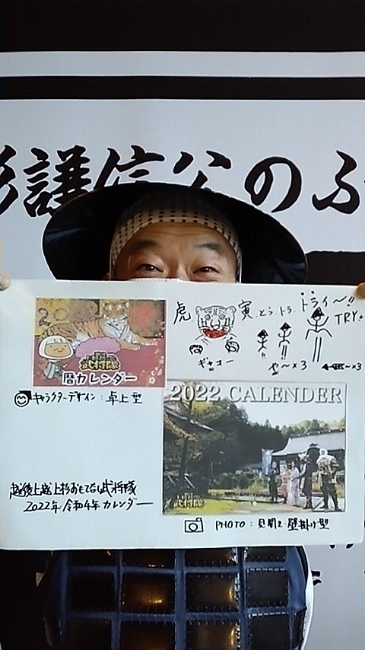 謙信公のふ
虎 寅 とら、トラ、トライ〜!!
TRY!
ギャオー
2022
暦カレンダー
キャラクターデザイン：卓上型
2022 CALENDER
武将隊
越後上越上杉おもてなし武将隊
2022年/令和4年カレンダー
PHOTO：見開き壁掛け型